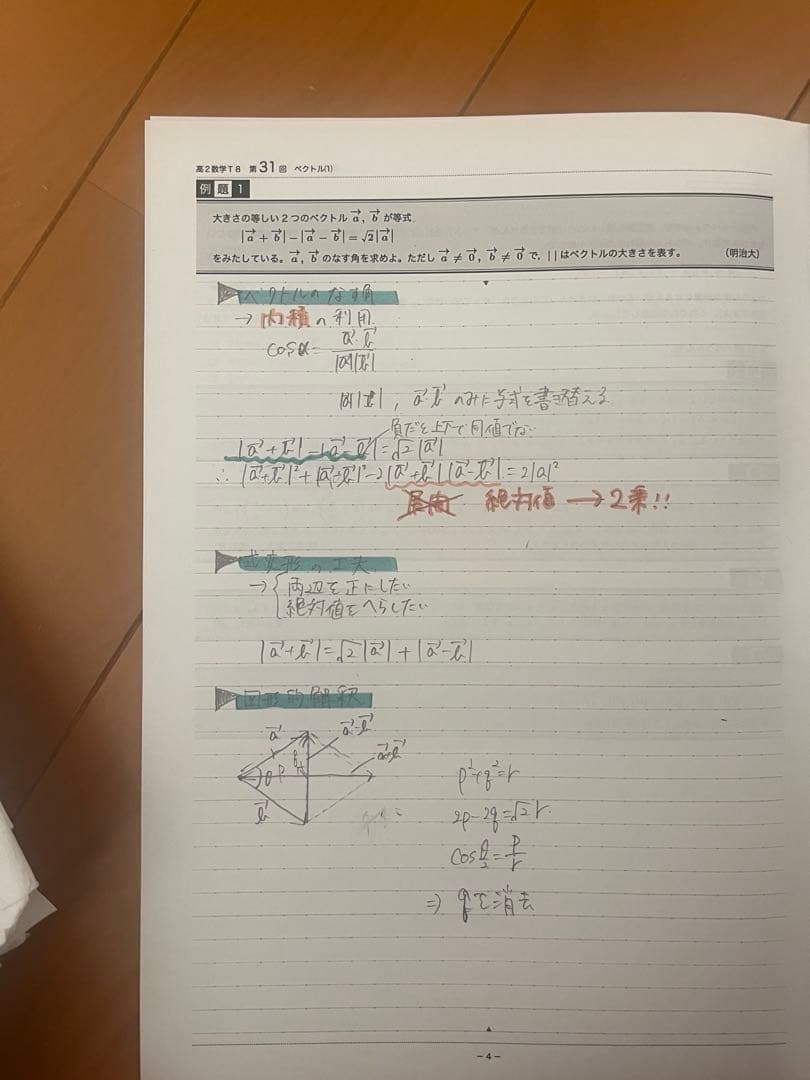 高2数学T8 第31回 ベクトル(1)
例題1
大きさの等しい2つのベクトル a→, b→ が等式
|a→ + b→| − |a→ − b→| = √2|a→|
をみたしている。a→, b→ のなす角を求めよ。ただし a→ ≠ 0→, b→ ≠ 0→ で, | | はベクトルの大きさを表す。 (明治大)
ベクトルのなす角
→ 内積の利用
cosα = a→・b→ / |a→||b→|
|a→||b→|, a→・b→ のみに与式を書き替える
負だと上下で同値でない
|a→+b→| − |a→−b→| = √2|a→|
∴ |a→+b→|² + |a→−b→|² − 2|a→+b→||a→−b→| = 2|a|²
絶対値 → 2乗!!
式変形の工夫
→ { 両辺を正にしたい
絶対値をへらしたい
|a→+b→| = √2|a→| + |a→−b→|
図形的解釈
a→ a→−b→
a→+b→
θ p q
b→
p²+q²=r
2p−2q=√2r
cos θ/2 = p/r
⇒ qを消去
−4−